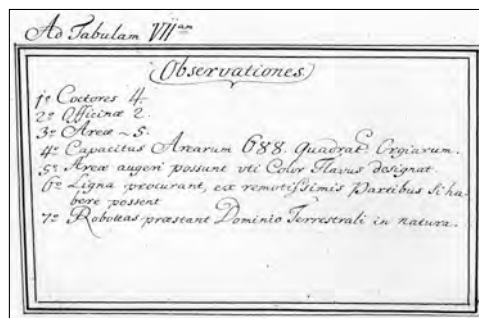 Ad Tabulam VIIam
Observationes
1o Coctores 4.
2o Officinæ 2.
3o Areæ ~ 5.
4o Capacitas Arearum 688. Quadrat. Orgiarum.
5o Areæ augeri possunt uti Color Flavus designat.
6o Ligna procurant, ex remotissimis Partibus si ha-
bere possent
7o Robottas præstant Dominio Terrestrali in natura.